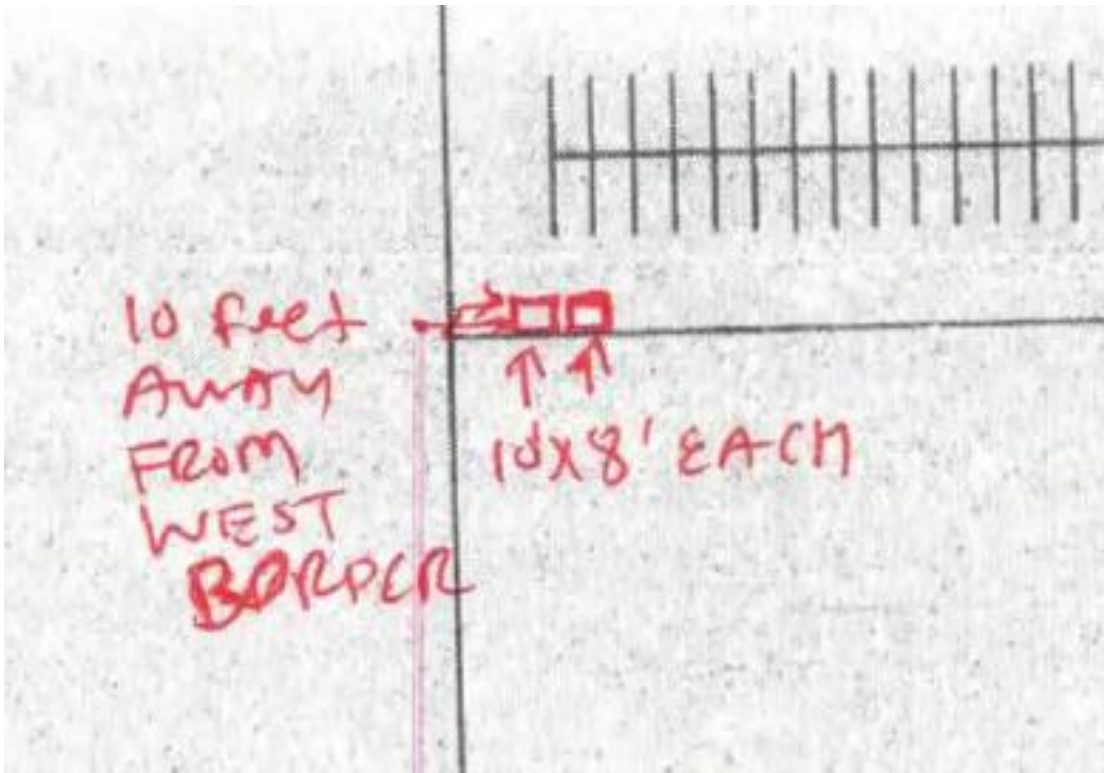 10 feet
AWAY
FROM
WEST
BORDER
10'X8' EACH